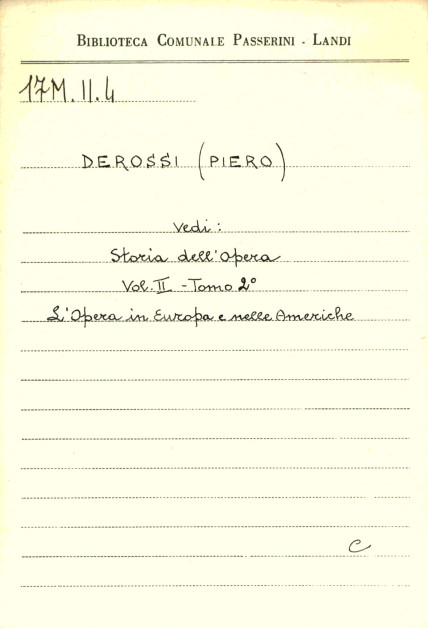 BIBLIOTECA COMUNALE PASSERINI - LANDI
17M.II.4
DEROSSI (PIERO)
Vedi:
Storia dell'Opera
Vol. II - Tomo 2°
L'Opera in Europa e nelle Americhe
C